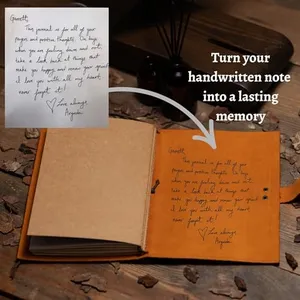 Garrett,
This journal is for all of your
prayers and positive thoughts. On days
when you are feeling down and out,
take a look back at things that
make you happy and renew your spirit.
I love you with all my heart,
never forget it!
Love always,
Turn your
handwritten note
into a lasting
memory
Garrett,
This journal is for all of your
prayers and positive thoughts. On days
when you are feeling down and out,
take a look back at things that
make you happy and renew your spirit.
I love you with all my heart,
never forget it!
Love always,